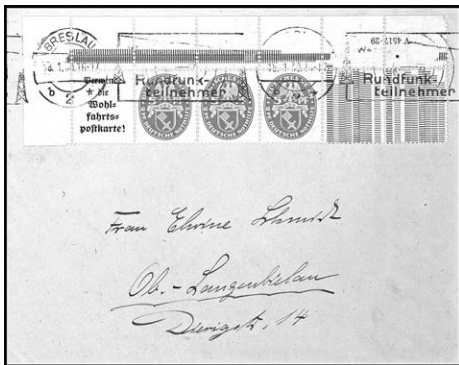 BRESLAU
V 4517-29
Rundfunk- Rundfunk-
teilnehmer teilnehmer
b 2 b
die
Wohl-
fahrts-
postkarte!
5 Pf 5 Pf
DEUTSCHE NOTHILFE DEUTSCHE NOTHILFE DEUTSCHE NOTHILFE
Frau Elwine Schmidt
Ob.-Langenbielau
Dierigstr. 14